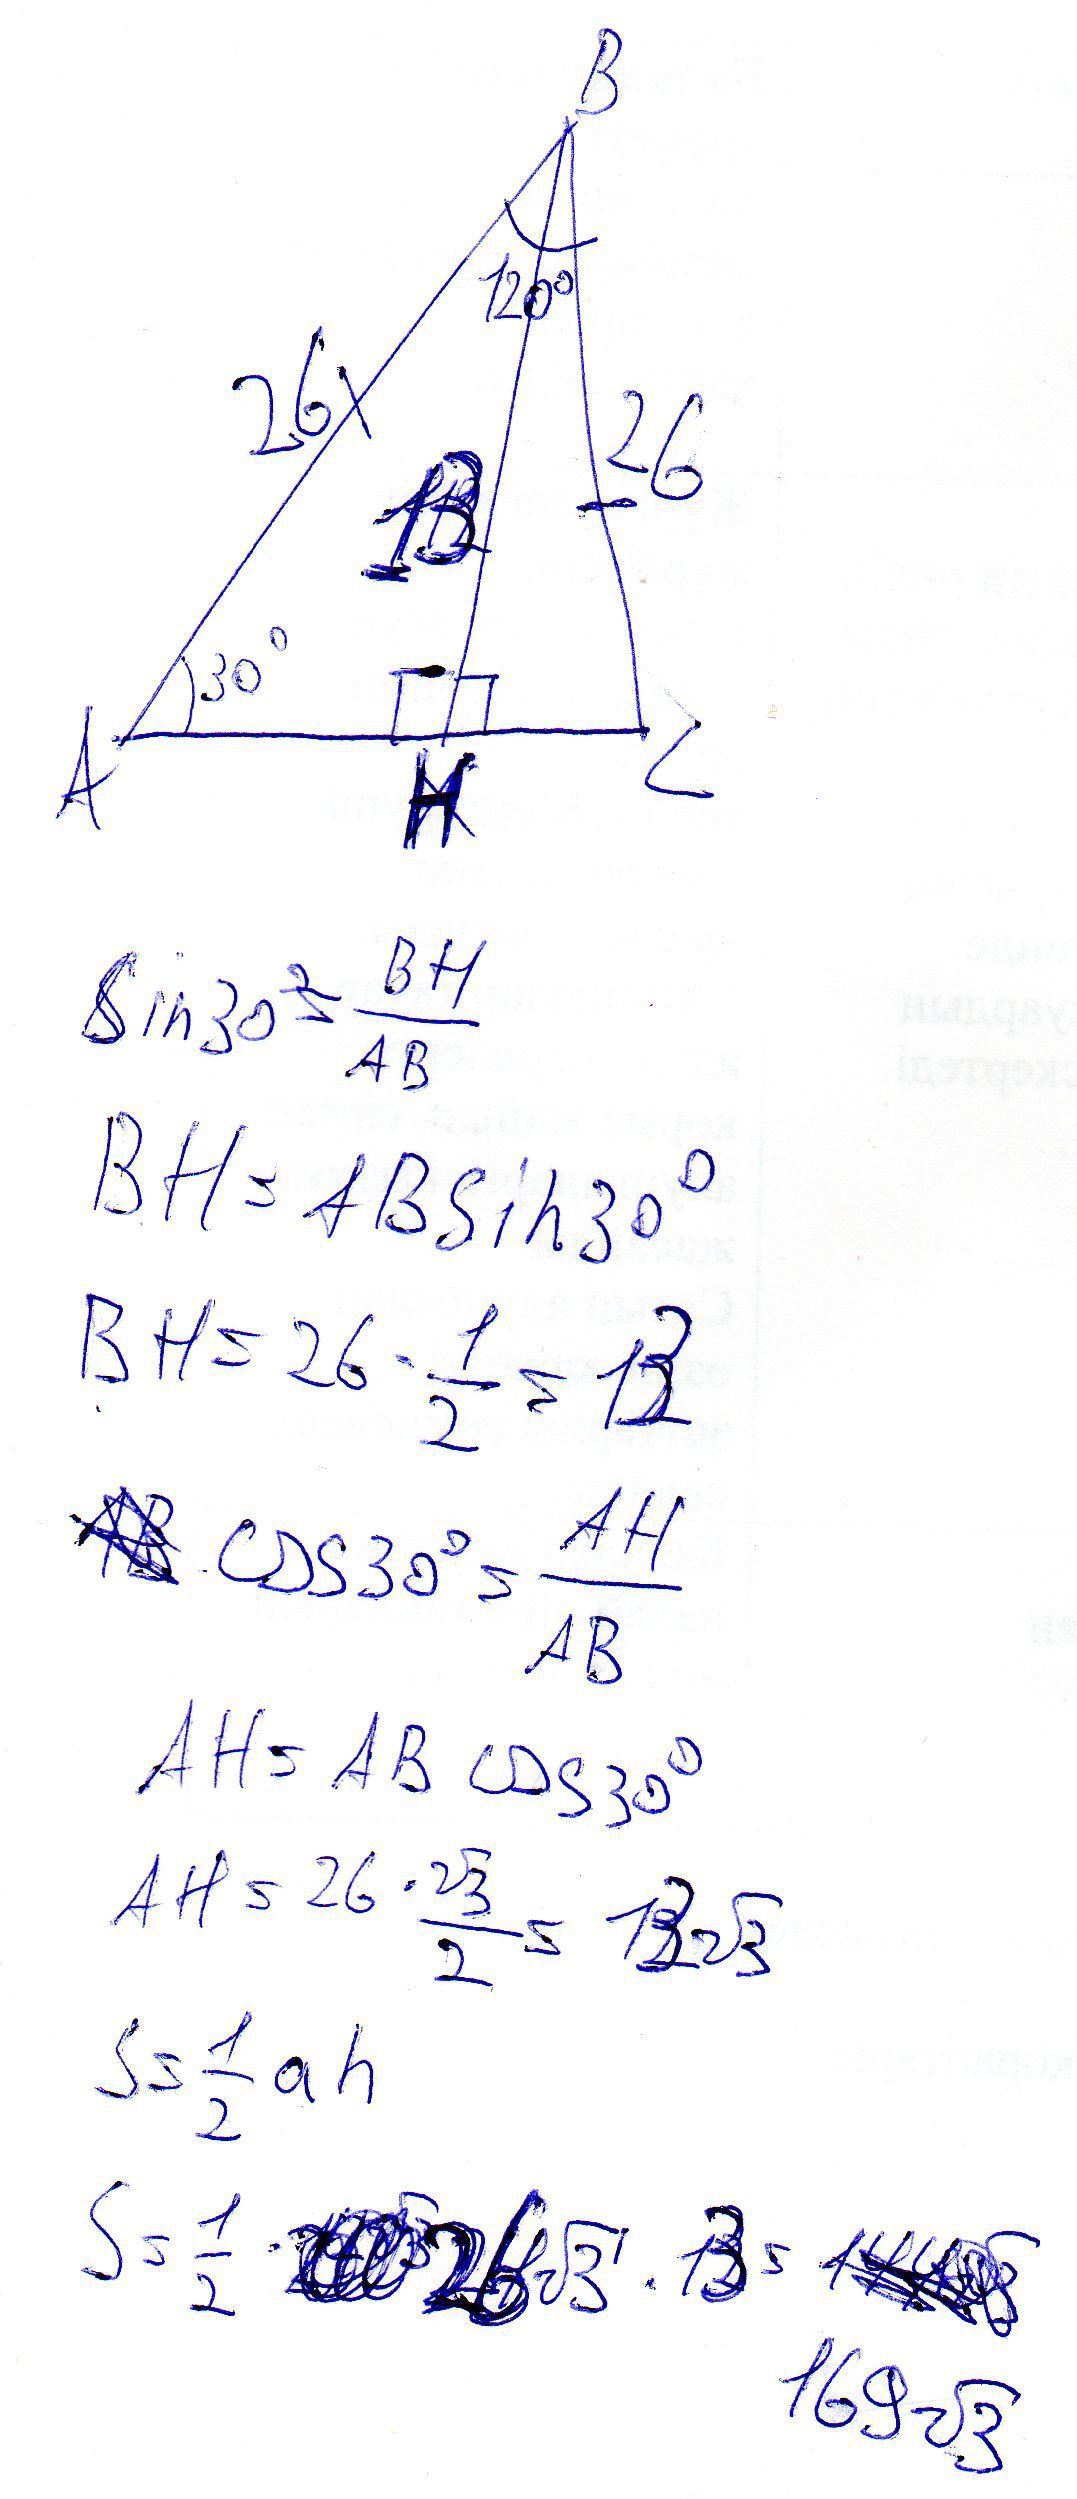 B
120°
26
26
13
30°
A
H
C
Sin30° = BH/AB
BH = AB Sin30°
BH = 26 · 1/2 = 13
cos30° = AH/AB
AH = AB cos30°
AH = 26 · √3/2 = 13√3
S = 1/2 ah
S = 1/2 · 26√3 · 13 =
169√3